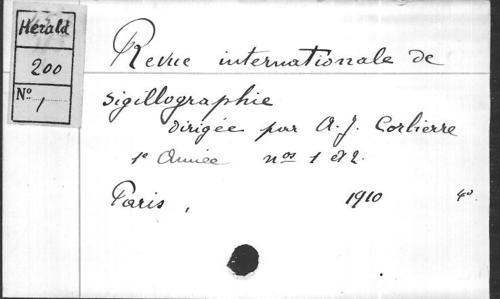 Herald
200
N° 1
Revue internationale de
sigillographie
dirigée par A. J. Corbierre
1e Année nos 1 et 2.
Paris, 1910 4°